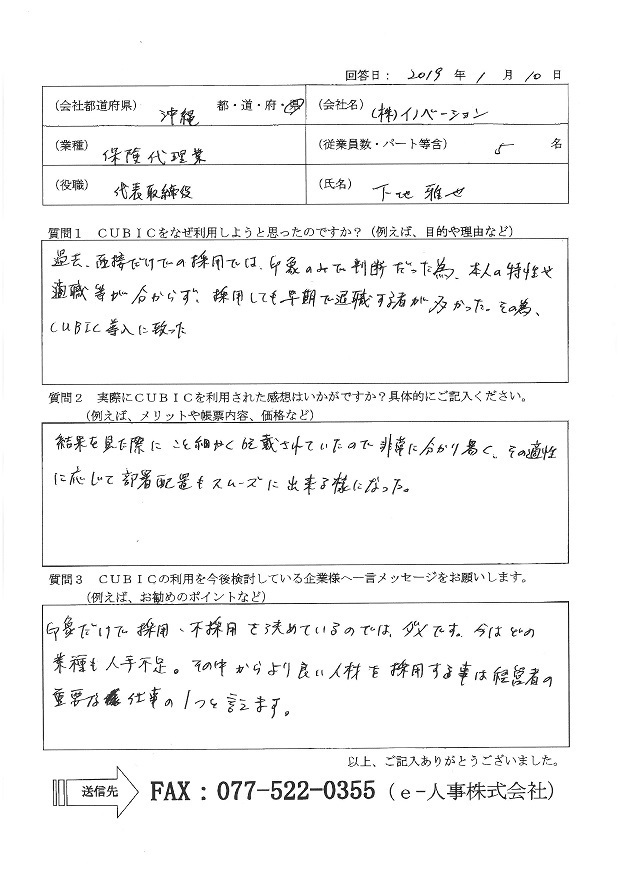 回答日： 2019 年 1 月 10 日
（会社都道府県） 沖縄 都・道・府・県
（会社名） (株)イノベーション
（業種） 保険代理業
（従業員数・パート等含） 5 名
（役職） 代表取締役
（氏名） 下地 雅也
質問１　ＣＵＢＩＣをなぜ利用しようと思ったのですか？（例えば、目的や理由など）
過去、面接だけでの採用では、印象のみで判断だった為、本人の特性や
適職等が分からず、採用しても早期で退職する者が多かった。その為、
CUBIC導入に致った
質問２　実際にＣＵＢＩＣを利用された感想はいかがですか？具体的にご記入ください。
（例えば、メリットや帳票内容、価格など）
結果を見た際にこと細かく記載されていたので非常に分かり易く、その適性
に応じて部署配置もスムーズに出来る様になった。
質問３　ＣＵＢＩＣの利用を今後検討している企業様へ一言メッセージをお願いします。
（例えば、お勧めのポイントなど）
印象だけで採用、不採用を決めているのでは、ダメです。今はどの
業種も人手不足。その中からより良い人材を採用する事は経営者の
重要な仕事の1つと言えます。
以上、ご記入ありがとうございました。
送信先 FAX：077-522-0355（ｅ-人事株式会社）